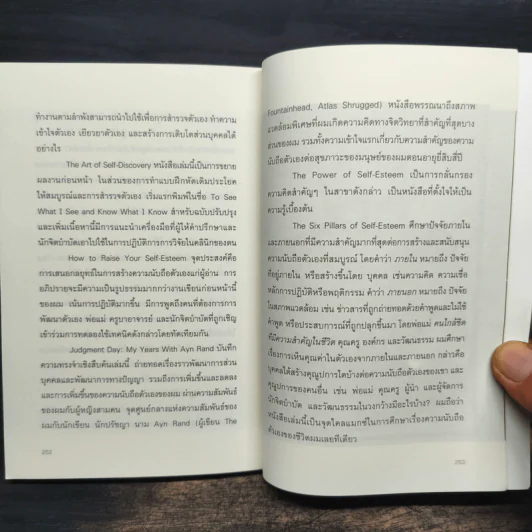 ทำงานตามลำพังสามารถนำไปใช้เพื่อการสำรวจตัวเอง ทำความ
เข้าใจตัวเอง เยียวยาตัวเอง และสร้างการเติบโตส่วนบุคคลได้
อย่างไร
The Art of Self-Discovery หนังสือเล่มนี้เป็นการขยาย
ผลงานก่อนหน้า ในส่วนของการทำแบบฝึกหัดเติมประโยค
ให้สมบูรณ์และการสำรวจตัวเอง เริ่มแรกพิมพ์ในชื่อ To See
What I See and Know What I Know สำหรับฉบับปรับปรุง
และเพิ่มเนื้อหานี้มีการแนะนำเครื่องมือที่ผู้ให้คำปรึกษาและ
นักจิตบำบัดเอาไปใช้ในการปฏิบัติการการวิจัยในคลินิกของตน
How to Raise Your Self-Esteem จุดประสงค์คือ
การเสนอกลยุทธ์ในการสร้างความนับถือตัวเองแก่ผู้อ่าน การ
อภิปรายจะมีความเป็นรูปธรรมมากกว่างานเขียนก่อนหน้านี้
ของผม เน้นการปฏิบัติมากขึ้น มีการพูดถึงคนที่ต้องการการ
พัฒนาตัวเอง พ่อแม่ ครูบาอาจารย์ และนักจิตบำบัดที่ถูกเชิญ
เข้าร่วมการทดลองใช้เทคนิคดังกล่าวโดยทัดเทียมกัน
Judgment Day: My Years With Ayn Rand บันทึก
ความทรงจำเชิงสืบค้นเล่มนี้ ถ่ายทอดเรื่องราวพัฒนาการส่วน
บุคคลและพัฒนาการทางปัญญา รวมถึงการเพิ่มขึ้นและลดลง
และการเพิ่มขึ้นของความนับถือตัวเองของผม ผ่านความสัมพันธ์
ของผมกับผู้หญิงสามคน จุดศูนย์กลางแห่งความสัมพันธ์ของ
ผมกับนักเขียน นักปรัชญา นาม Ayn Rand (ผู้เขียน The
252
Fountainhead, Atlas Shrugged) หนังสือพรรณนาถึงสภาพ
แวดล้อมพิเศษที่ผมเกิดความคิดทางจิตวิทยาที่สำคัญที่สุดบาง
ส่วนของผม รวมทั้งความเข้าใจแรกเกี่ยวกับความสำคัญของความ
นับถือตัวเองต่อสุขภาวะของมนุษย์ของผมตอนอายุยี่สิบสี่ปี
The Power of Self-Esteem เป็นการกลั่นกรอง
ความคิดสำคัญๆ ในสาขาดังกล่าว เป็นหนังสือที่ตั้งใจให้เป็น
ความรู้เบื้องต้น
The Six Pillars of Self-Esteem ศึกษาปัจจัยภายใน
และภายนอกที่มีความสำคัญมากที่สุดต่อการสร้างและสนับสนุน
ความนับถือตัวเองที่สมบูรณ์ โดยคำว่า ภายใน หมายถึง ปัจจัย
ที่อยู่ภายใน หรือสร้างขึ้นโดย บุคคล เช่นความคิด ความเชื่อ
หลักการปฏิบัติหรือพฤติกรรม คำว่า ภายนอก หมายถึง ปัจจัย
ในสภาพแวดล้อม เช่น ข่าวสารที่ถูกถ่ายทอดด้วยคำพูดและไม่ใช้
คำพูด หรือประสบการณ์ที่ถูกปลูกขึ้นมา โดยพ่อแม่ คนใกล้ชิด
ที่มีความสำคัญในชีวิต คุณครู องค์กร และวัฒนธรรม ผมศึกษา
เรื่องการเห็นคุณค่าในตัวเองจากภายในและภายนอก กล่าวคือ
บุคคลได้สร้างคูณูปการใดบ้างต่อความนับถือตัวเองของเขา และ
คุณูปการของคนอื่น เช่น พ่อแม่ คุณครู ผู้นำ และผู้จัดการ
นักจิตบำบัด และวัฒนธรรมในวงกว้างมีอะไรบ้าง? ผมถือว่า
หนังสือเล่มนี้เป็นจุดไคลแมกซ์ในการศึกษาเรื่องความนับถือ
ตัวเองของชีวิตผมเลยทีเดียว
253